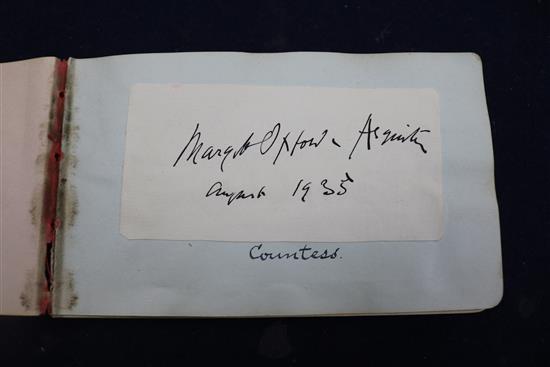 Margot Oxford Asquith
August 1935
Countess.